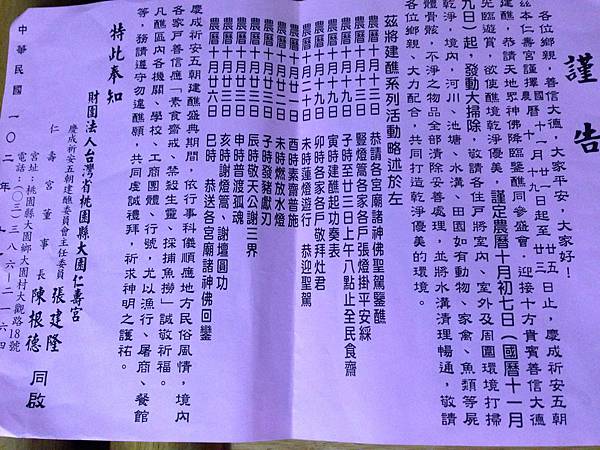 謹告
各位鄉親,善信大德,大家平安,大家好!
茲本仁壽宮謹擇農曆十月十九日起至廿三日止,慶成祈安五朝
建醮,恭請天地眾神佛降臨鑒醮同參盛會,迎接十方貴賓善信大德
光臨遊賞,欲使醮境乾淨優美,謹定農曆十月初七日(國曆十一月
九日)起,發動大掃除,敬請各住戶將室內、室外及周圍環境打掃
乾淨,境內,河川、池塘、水溝、田園如有動物、家禽、魚類等屍
體骨骸,不淨之物品全部清除妥善處理,並將水溝清理暢通,敬請
各位鄉親、大力配合,共同打造乾淨優美的環境。
茲將建醮系列活動略述於左
農曆十月十三日 恭請各宮廟諸神佛聖駕鑒醮
農曆十月十三日 豎燈篙各家各戶張燈掛平安綵
農曆十月十九日 子時至廿三日上午八點止全民食齋
農曆十月十九日 寅時建醮起功奏表
農曆十月十九日 卯時各家各戶敬拜灶君
農曆十月二十日 未時蓮燈遊行 恭迎聖駕
農曆十月廿一日 酉時素齋普施
農曆十月廿二日 未時燃放水燈
農曆十月廿三日 子時發豬獻刃
農曆十月廿三日 辰時敬天公謝三界
農曆十月廿三日 申時普渡孤魂
農曆十月廿三日 亥時謝燈篙、謝壇圓功
農曆十月廿六日 巳時 恭送各宮廟諸神佛回鑾
慶成祈安五朝建醮盛典期間,依行事科儀順應地方民俗風情,境內
各家戶善信應「素食齋戒、禁殺生靈、採捕魚撈」誠敬祈福。
凡醮區內各機關、學校、工商團體、行號,尤以漁行、屠商、餐館
等,務請遵守勿違醮願,共同虔誠禮拜,祈求神明之護祐。
特此奉知
財團法人台灣省桃園縣大園仁壽宮
慶成祈安五朝建醮委員會主任委員 張建隆
仁壽宮董事長 陳根德 同啟
宮址:桃園縣大園鄉大園村大觀路18號
電話:(〇三)三八六-二一六四
中華民國一〇二年